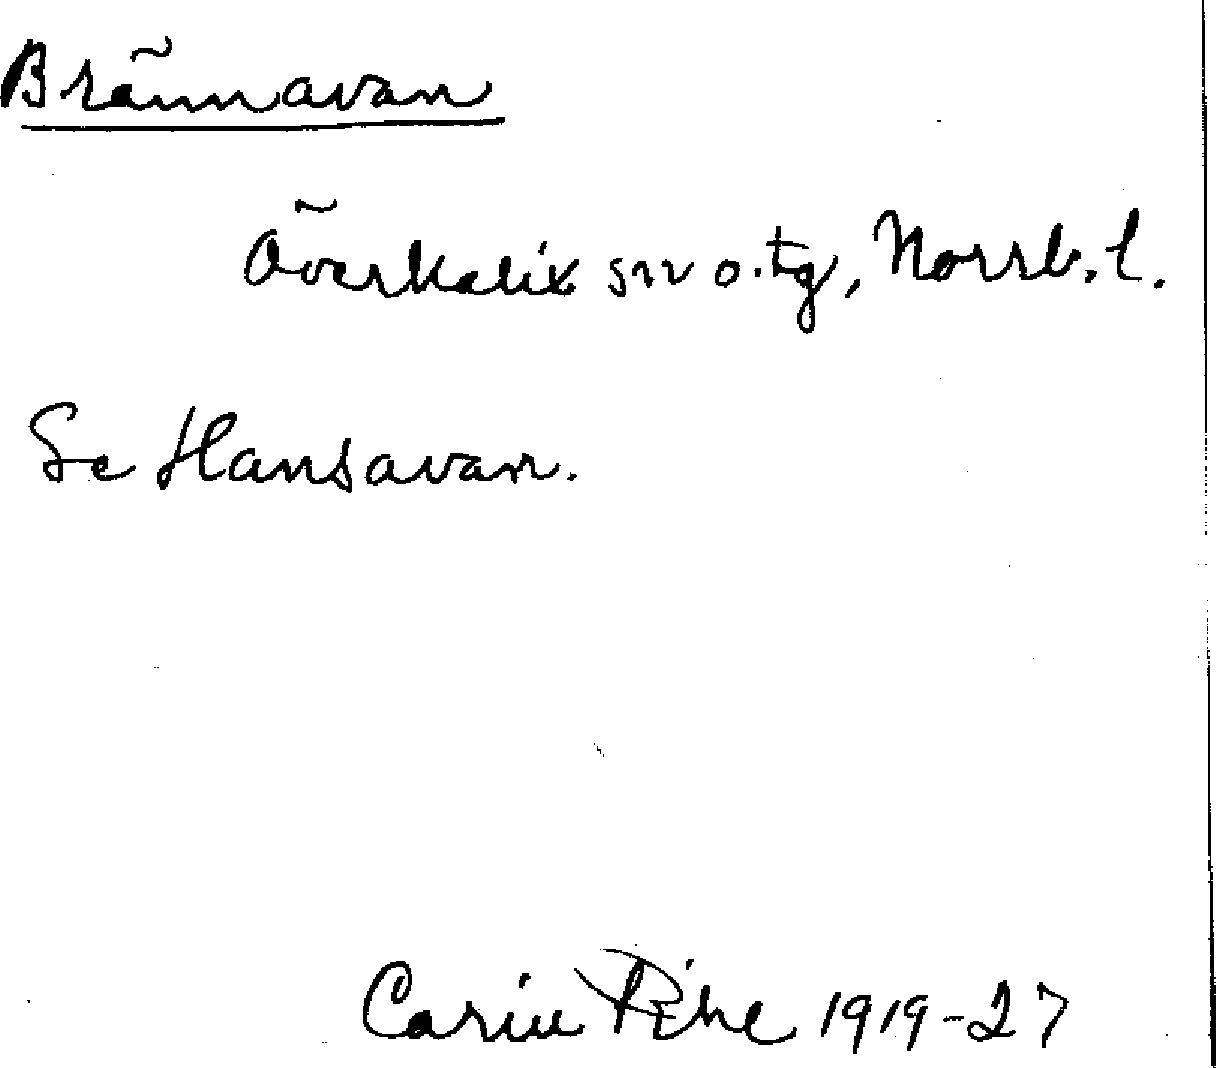 Brännavan
Överkalix sn o. tg, Norrb. l.
Se Hansavan.
Carin Pihl 1919-27